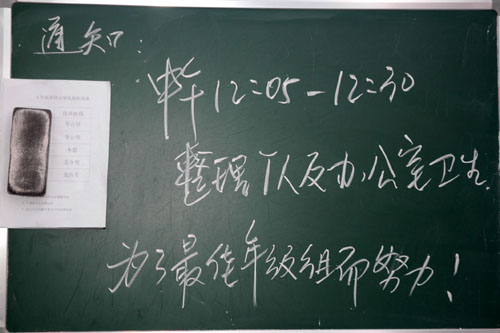 通知:
中午12:05-12:30
整理个人及办公室卫生.
为了最佳年级组而努力!